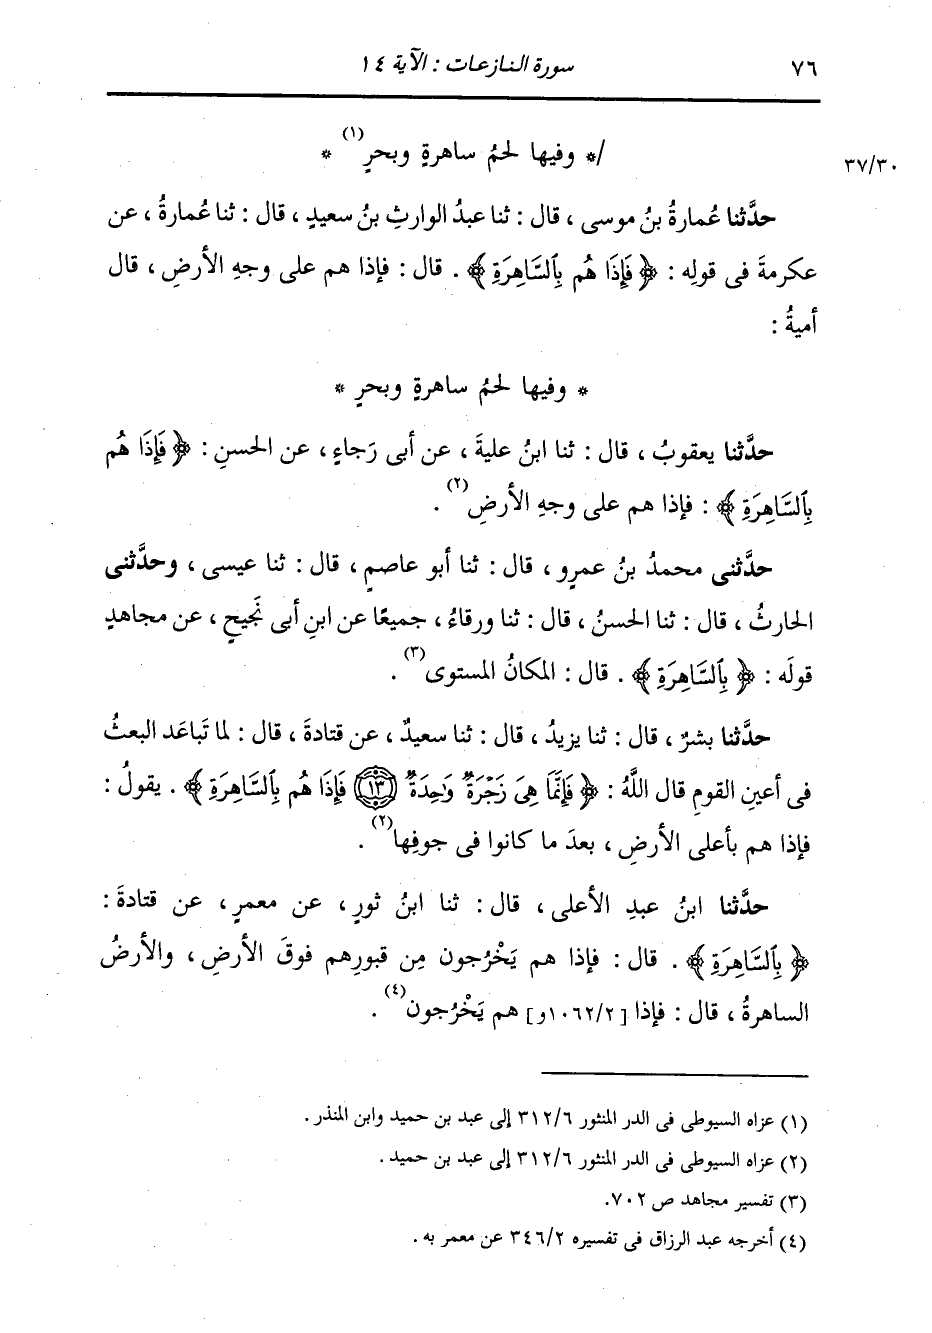 ٧٦ سورة النازعات : الآية ١٤
٣٧/٣٠ /* وفيها لحمُ ساهرةٍ وبحرٍ(١) *
حدَّثنا عُمارةُ بنُ موسى ، قال : ثنا عبدُ الوارثِ بنُ سعيدٍ ، قال : ثنا عُمارةُ ، عن
عكرمةَ فى قولِه : ﴿ فَإِذَا هُم بِٱلسَّاهِرَةِ ﴾ . قال : فإذا هم على وجهِ الأرضِ ، قال
أميةُ :
* وفيها لحمُ ساهرةٍ وبحرٍ *
حدَّثنا يعقوبُ ، قال : ثنا ابنُ عليةَ ، عن أبى رَجاءٍ ، عن الحسنِ : ﴿ فَإِذَا هُم
بِٱلسَّاهِرَةِ ﴾ : فإذا هم على وجهِ الأرضِ(٢) .
حدَّثنى محمدُ بنُ عمرٍو ، قال : ثنا أبو عاصمٍ ، قال : ثنا عيسى ، وحدَّثنى
الحارثُ ، قال : ثنا الحسنُ ، قال : ثنا ورقاءُ ، جميعًا عن ابنِ أبى نَجيحٍ ، عن مجاهدٍ
قولَه : ﴿ بِٱلسَّاهِرَةِ ﴾ . قال : المكانُ المستوى(٣) .
حدَّثنا بشرٌ ، قال : ثنا يزيدُ ، قال : ثنا سعيدٌ ، عن قتادةَ ، قال : لما تَباعَد البعثُ
فى أعينِ القومِ قال اللَّهُ : ﴿ فَإِنَّمَا هِىَ زَجْرَةٌ وَٰحِدَةٌ ١٣ فَإِذَا هُم بِٱلسَّاهِرَةِ ﴾ . يقولُ :
فإذا هم بأعلى الأرضِ ، بعدَ ما كانوا فى جوفِها(٢) .
حدَّثنا ابنُ عبدِ الأعلى ، قال : ثنا ابنُ ثورٍ ، عن معمرٍ ، عن قتادةَ :
﴿ بِٱلسَّاهِرَةِ ﴾ . قال : فإذا هم يَخْرُجون مِن قبورِهم فوقَ الأرضِ ، والأرضُ
الساهرةُ ، قال : فإذا [١٠٦٢/٢و] هم يَخْرُجون(٤) .
(١) عزاه السيوطى فى الدر المنثور ٣١٢/٦ إلى عبد بن حميد وابن المنذر .
(٢) عزاه السيوطى فى الدر المنثور ٣١٢/٦ إلى عبد بن حميد .
(٣) تفسير مجاهد ص ٧٠٢.
(٤) أخرجه عبد الرزاق فى تفسيره ٣٤٦/٢ عن معمر به .